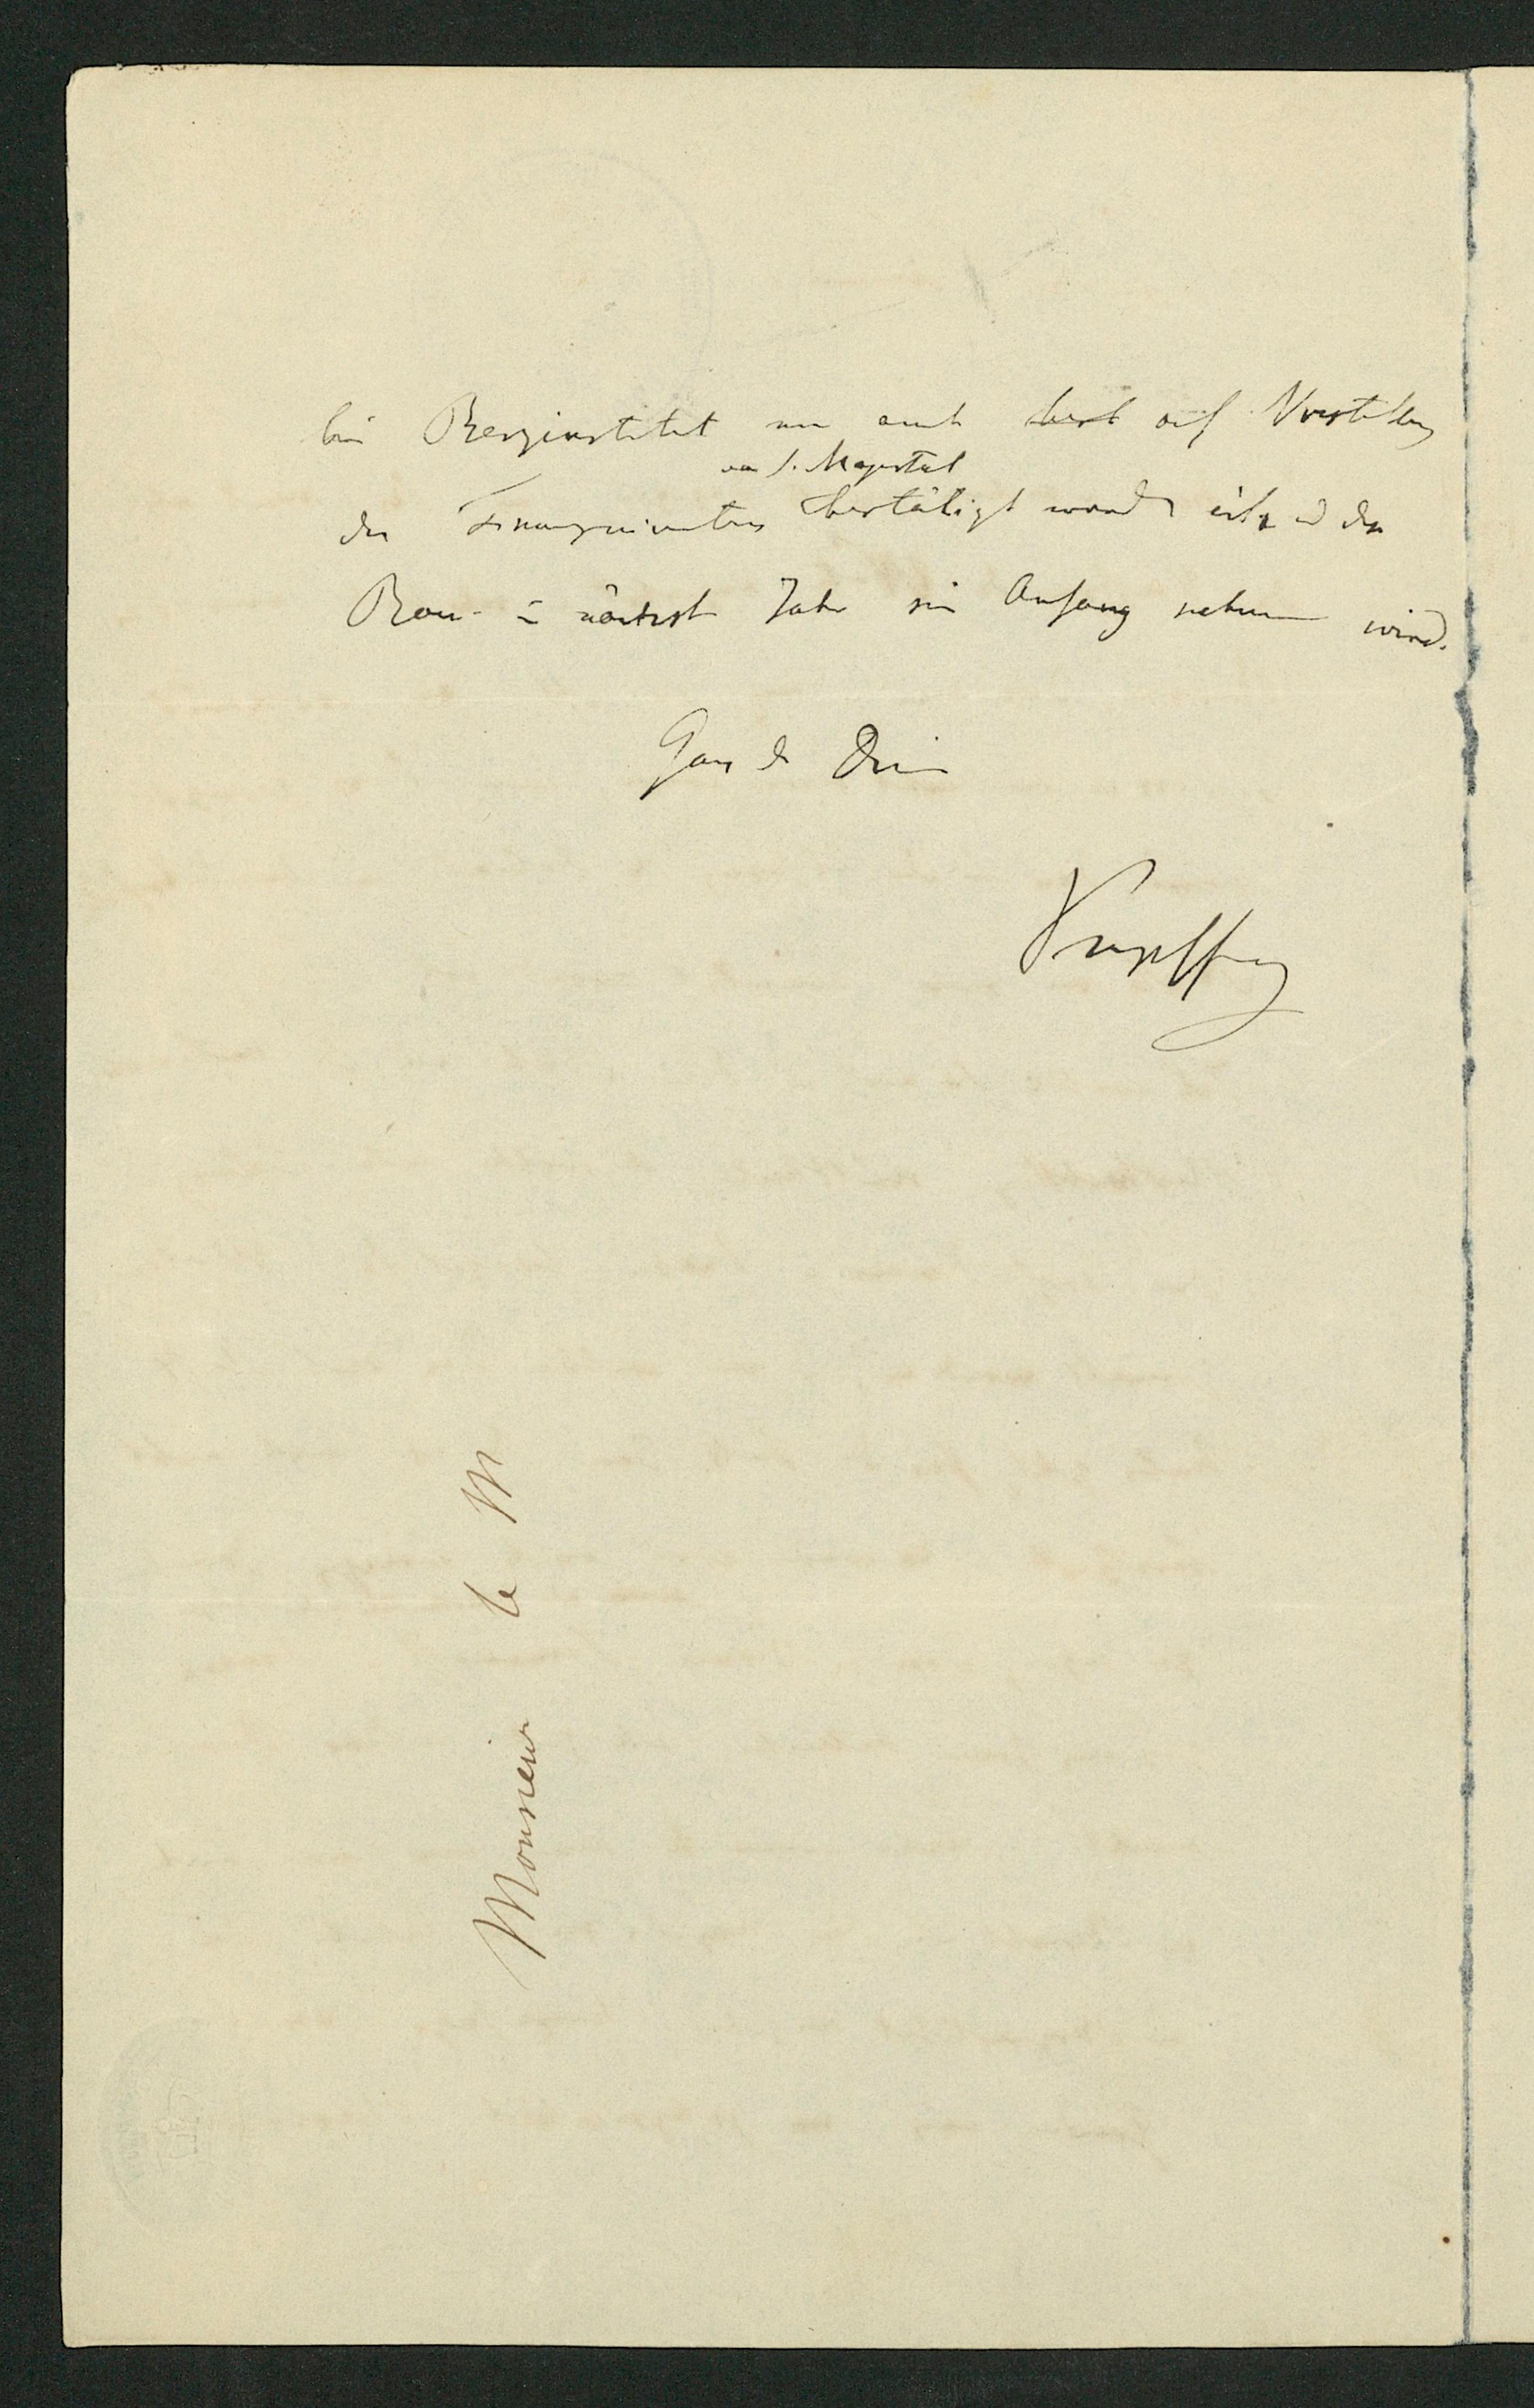 bei Berginstitut nun auch best auf Vorstellung
von S. Majestät
des Finanzministers bestätigt worden ist und der
Bau im nächsten Jahr sein Anfang nehmen wird.
Ganz der Deine
Kupffer
Monsieur le M